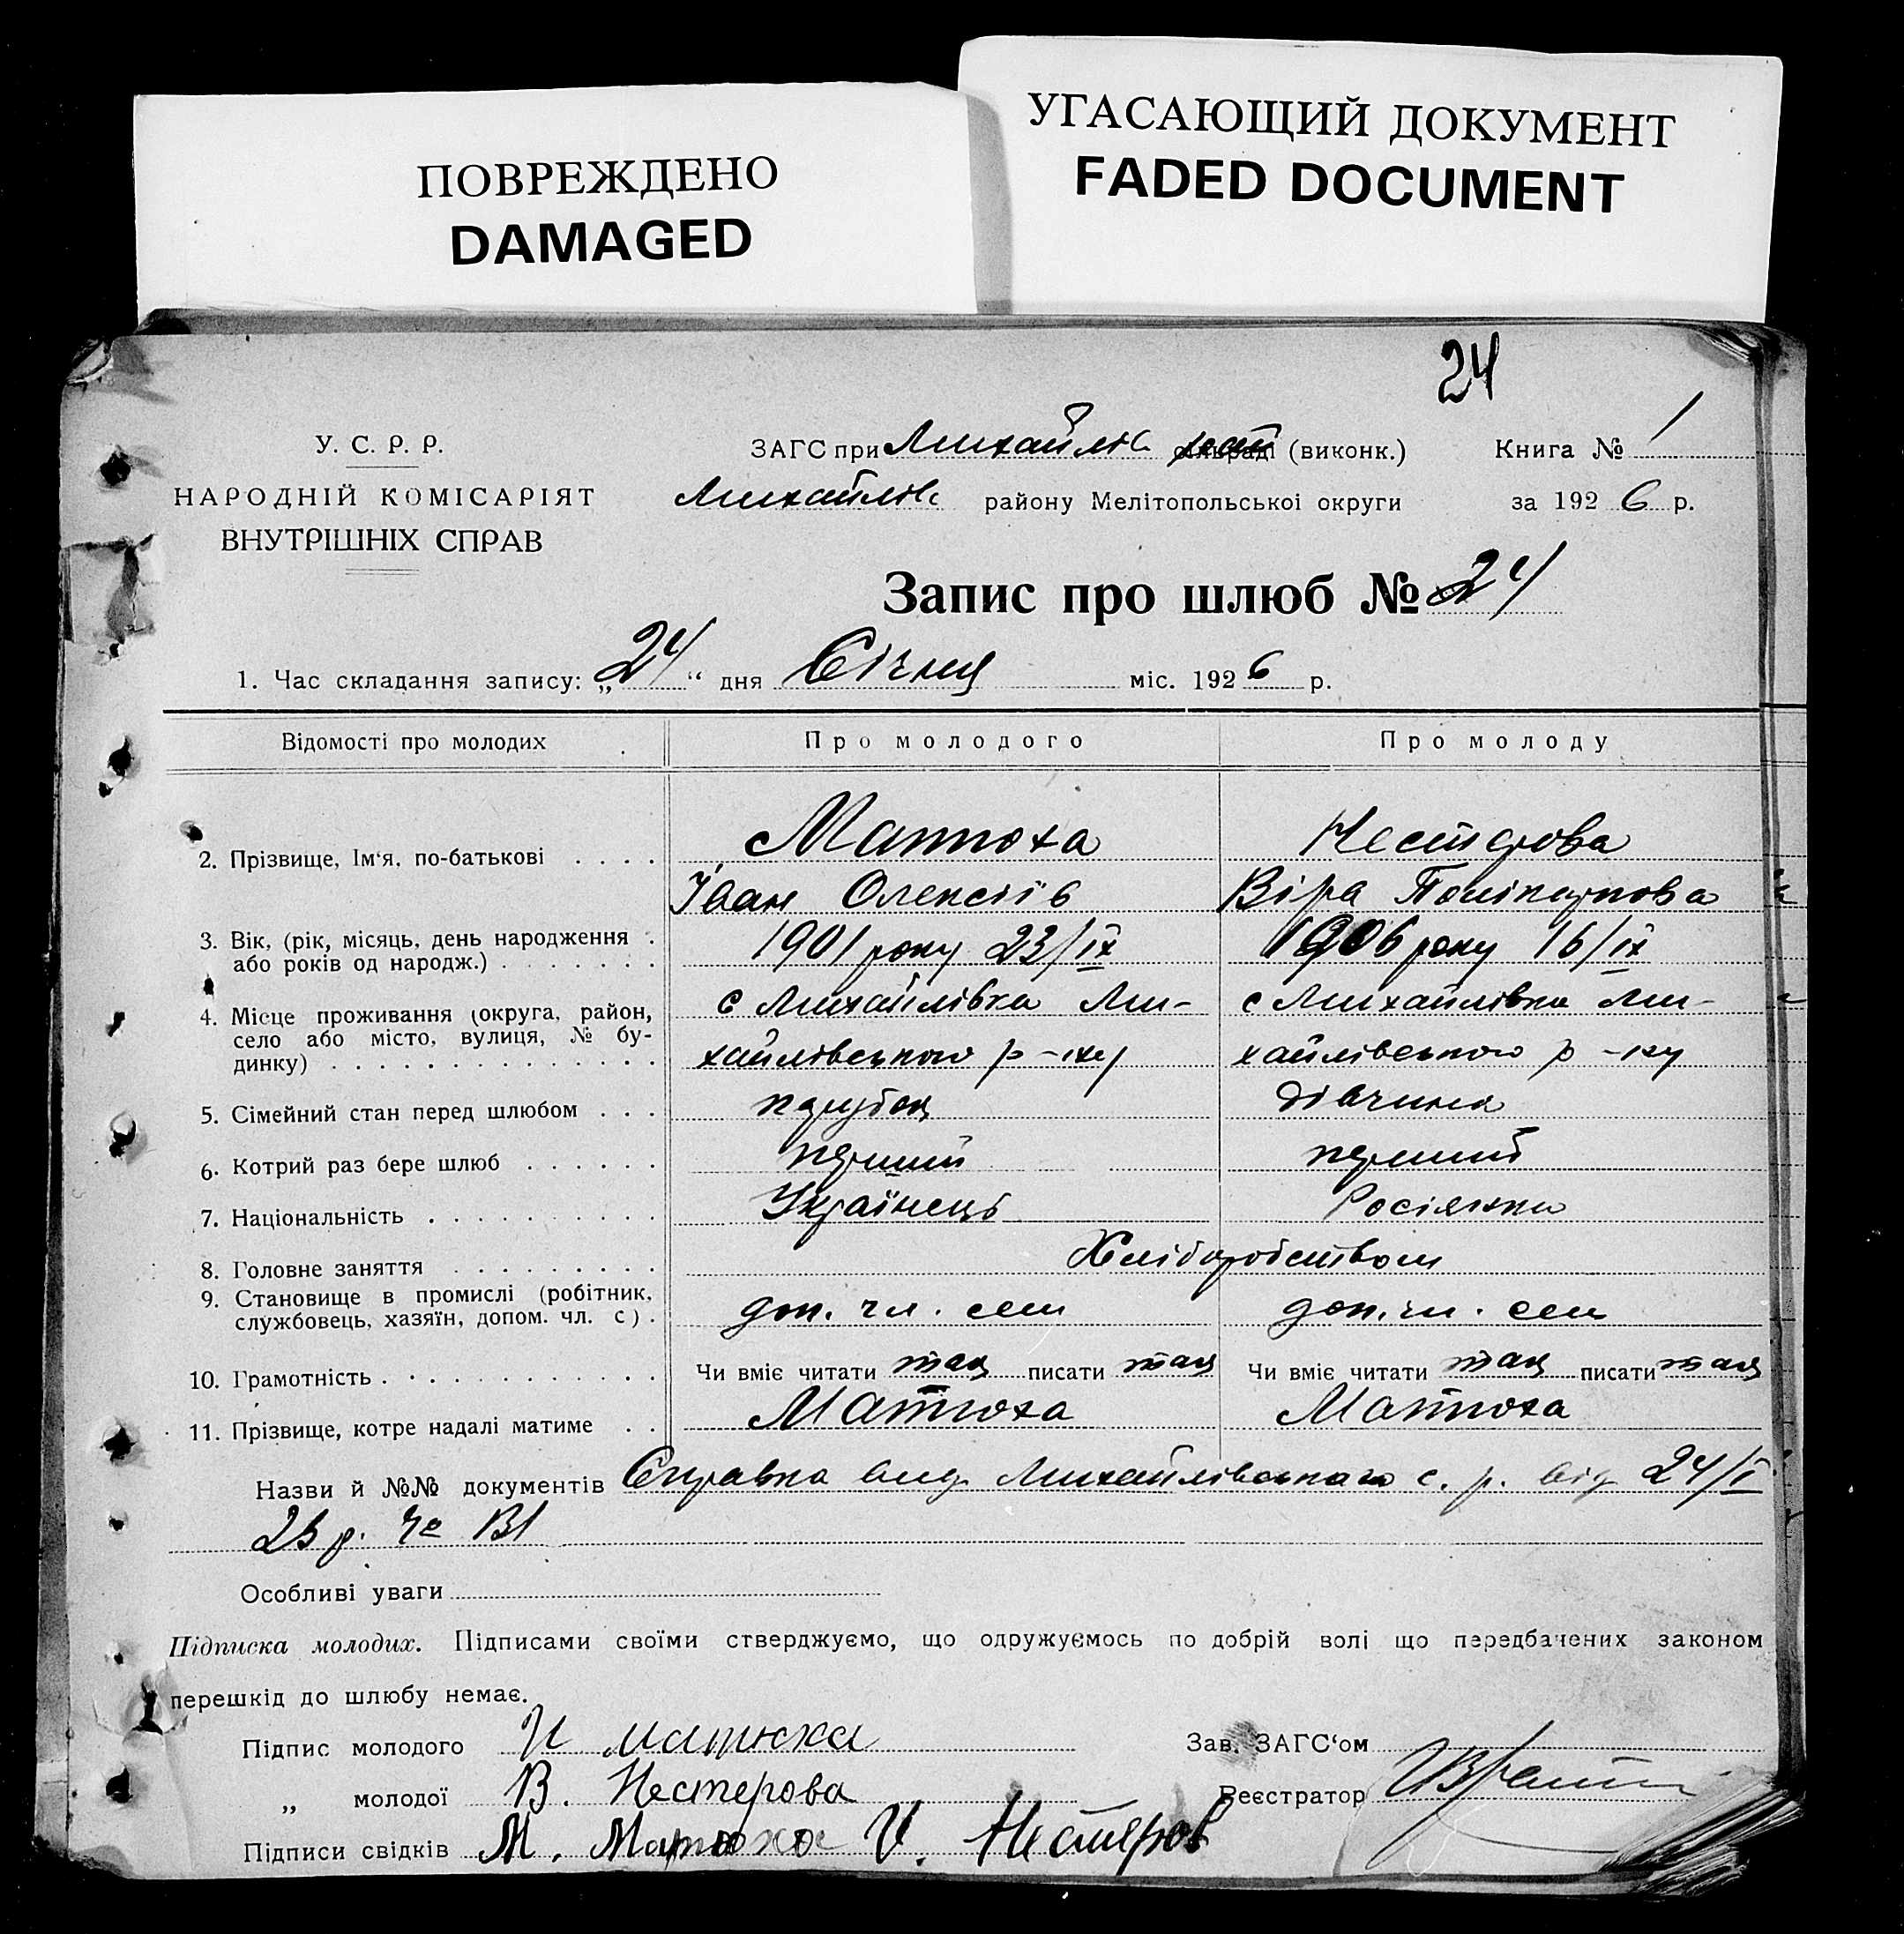 ПОВРЕЖДЕНО
DAMAGED
УГАСАЮЩИЙ ДОКУМЕНТ
FADED DOCUMENT
24
У. С. Р. Р.
НАРОДНІЙ КОМІСАРІЯТ
ВНУТРІШНІХ СПРАВ
ЗАГС при Михайлів сільраді (виконк.) Книга № 1
Михайлів району Мелітопольської округи за 1926 р.
Запис про шлюб № 24
1. Час складання запису: „24“ дня Січня міс. 1926 р.
Відомості про молодих Про молодого Про молоду
2. Прізвище, Ім'я, по-батькові . . . . Матюха Нестерова
Іван Олексіїв Віра Полікарпова
3. Вік, (рік, місяць, день народження . 1901 року 23/ІХ 1906 року 16/ІХ
або років од народж.) . . . . . . .
4. Місце проживання (округа, район, с Михайлівка Ми- с Михайлівка Ми-
село або місто, вулиця, № бу-
динку) . . . . . . . . . . . . . . хайлівського р-ну хайлівського р-ну
5. Сімейний стан перед шлюбом . . . парубок дівчина
6. Котрий раз бере шлюб . . . . . . перший перший
7. Національність . . . . . . . . . . Українець Росіянка
8. Головне заняття . . . . . . . . . Хліборобством
9. Становище в промислі (робітник,
службовець, хазяїн, допом. чл. с) . доп. чл. сем доп. чл. сем
10. Грамотність . . . . . . . . . . . . Чи вміє читати так писати так Чи вміє читати так писати так
11. Прізвище, котре надалі матиме . . Матюха Матюха
Назви й №№ документів Справка вид. Михайлівського с. р. від 24/І
26 р. Чо
Особливі уваги
Підписка молодих. Підписами своїми стверджуємо, що одружуємось по добрій волі що передбачених законом
перешкід до шлюбу немає.
Підпис молодого И Матюха Зав. ЗАГС'ом
„ молодої В. Нестерова Реєстратор
Підписи свідків М. Матюха И. Нестеров